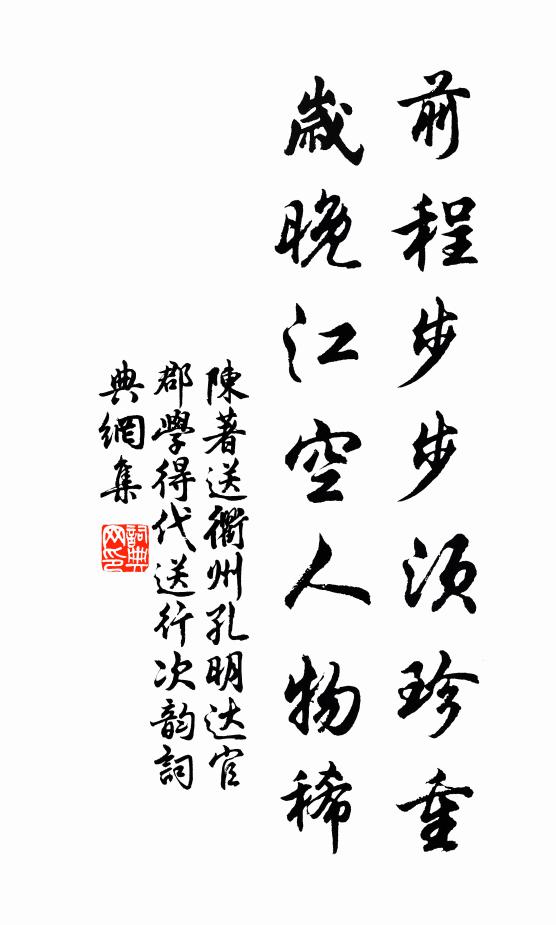 前程步步須珍重
歲晚江空人物稀
陳著送衢州孔明达官
郡學得代送行次韵詞
典網集
詞典网印